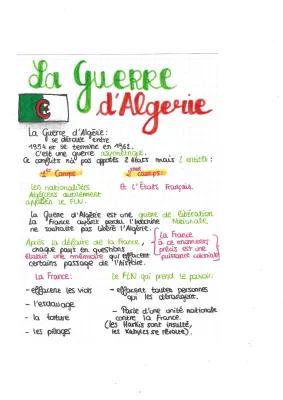 La Guerre
d'Algerie
La Guerre d'Algérie:
se déroule entre
1954 et se termine en 1962.
C'est une guerre asymétrique.
Ce conflits n'a pas opposés 2 états mais 2 entités :
1er Camps
2ème camps:
Les nationalistes
Algériens autrement
appelés le FLN.
Et l'États Français.
La Guerre d'Algérie est une guerre de libération
Nationale,
La France ayant perdu l'Indochine
ne souhaite pas libéré l'Algérie.
Après la défaite de la France,
chaque pays en questions
établit une mémoire qui effacent
certains passage de l'histoire.
La France
à ce moment
précis est une
puissance coloniale
La France:
- effacent les viols
- l'esclavage
- la torture
- les pillages
Le FLN qui prend le pouvoir:
- effacent toutes personnes
qui les dérangera.
- Parle d'une unité nationale
contre la France.
(les Harkis sont insulté,
les Kabyles se révolte).